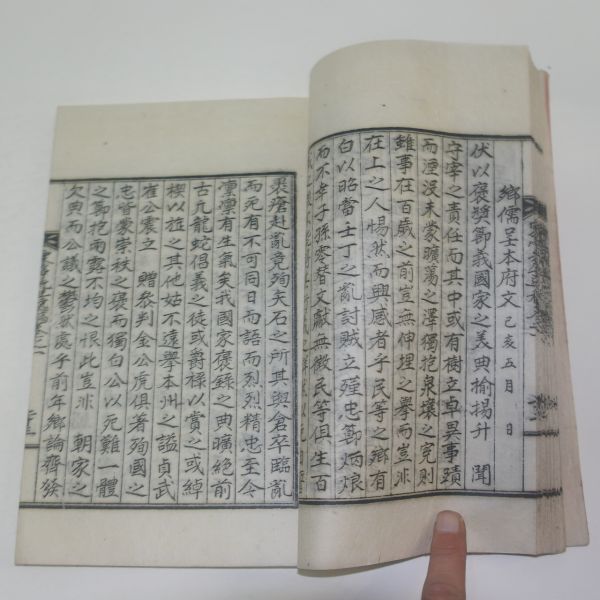 鄕儒呈本府文 己亥五月 日
伏以褒奬節義國家之美典揄揚升 聞
守宰之責任而其中或有樹立卓異事蹟
而湮沒未蒙曠蕩之澤獨抱泉壤之寃則
雖事在百歲之前豈無伸埋之擧而豈非
在上之人惕然而興感者乎民等之鄕有
白以昭當壬丁之亂討賊立殣忠節炳烺
而不幸子孫零替文獻無徵民等俱生百
裹瘡赴亂竟殉矢石之所其與倉卒臨亂
而死有不可同日而語而烈烈精忠至今
凜凜有生氣矣我國家褒錄之典曠絶前
古亢龍蛇倡義之徒或爵祿以賞之或綽
楔以㫌之其他姑不遠擧本州之謚貞武
崔公震立 贈參判金公虎俱著殉國之
忠皆蒙崇秩之褒而獨白公以死難一體
之節抱雨露不均之恨此豈非 朝家之
欠典而公議之鬱 處乎前年鄕論齊發